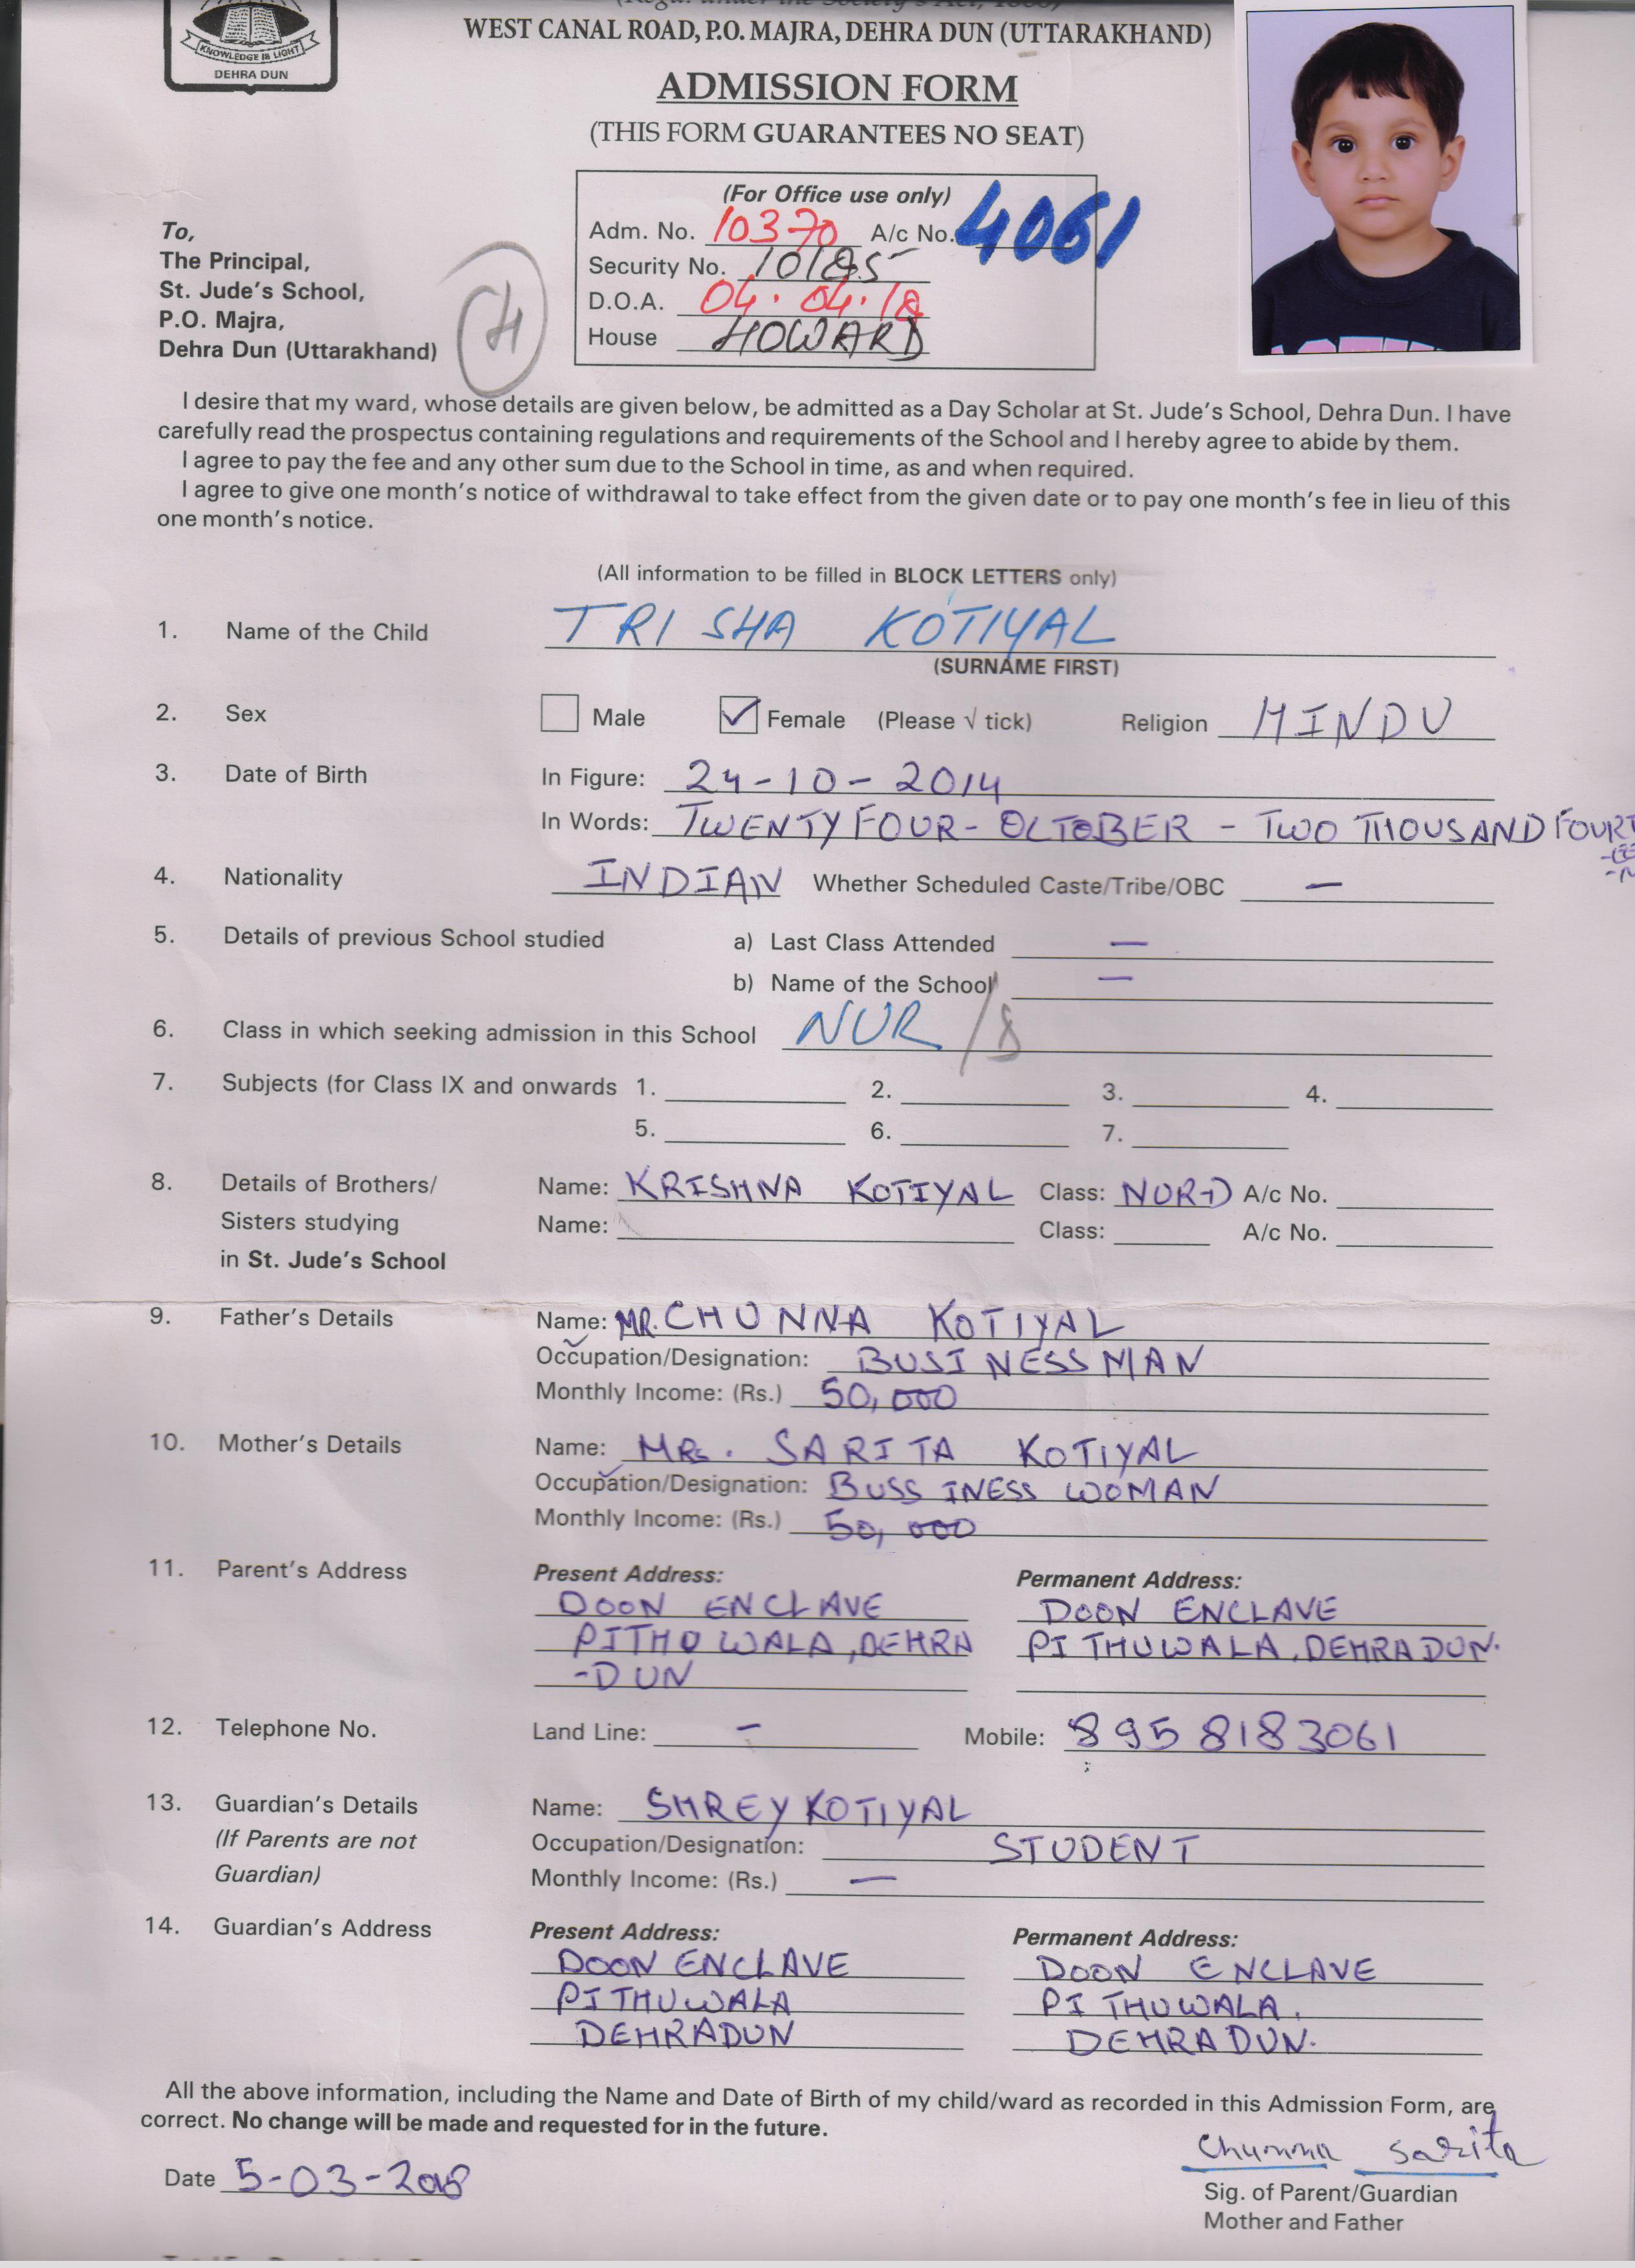 KNOWLEDGE IS LIGHT
DEHRA DUN
WEST CANAL ROAD, P.O. MAJRA, DEHRA DUN (UTTARAKHAND)
ADMISSION FORM
(THIS FORM GUARANTEES NO SEAT)
(For Office use only)
Adm. No. 10370 A/c No. 4061
Security No. 10185
D.O.A. 04.04.18
House HOWARD
To,
The Principal,
St. Jude's School,
P.O. Majra,
Dehra Dun (Uttarakhand)
H
I desire that my ward, whose details are given below, be admitted as a Day Scholar at St. Jude's School, Dehra Dun. I have
carefully read the prospectus containing regulations and requirements of the School and I hereby agree to abide by them.
I agree to pay the fee and any other sum due to the School in time, as and when required.
I agree to give one month's notice of withdrawal to take effect from the given date or to pay one month's fee in lieu of this
one month's notice.
(All information to be filled in BLOCK LETTERS only)
1. Name of the Child TRISHA KOTIYAL
(SURNAME FIRST)
2. Sex Male ✓ Female (Please √ tick) Religion HINDU
3. Date of Birth In Figure: 24-10-2014
In Words: TWENTY FOUR - OCTOBER - TWO THOUSAND FOURT
4. Nationality INDIAN Whether Scheduled Caste/Tribe/OBC —
5. Details of previous School studied a) Last Class Attended —
b) Name of the School —
6. Class in which seeking admission in this School NUR /
7. Subjects (for Class IX and onwards 1. 2. 3. 4.
5. 6. 7.
8. Details of Brothers/ Name: KRISHNA KOTIYAL Class: NUR-D A/c No.
Sisters studying Name: Class: A/c No.
in St. Jude's School
9. Father's Details Name: MR. CHUNNA KOTIYAL
Occupation/Designation: BUSINESS MAN
Monthly Income: (Rs.) 50,000
10. Mother's Details Name: MRs. SARITA KOTIYAL
Occupation/Designation: BUSSINESS WOMAN
Monthly Income: (Rs.) 50,000
11. Parent's Address Present Address: Permanent Address:
DOON ENCLAVE DOON ENCLAVE
PITHUWALA, DEHRA PITHUWALA, DEHRADUN.
-DUN
12. Telephone No. Land Line: — Mobile: 8958183061
13. Guardian's Details Name: SHREY KOTIYAL
(If Parents are not Occupation/Designation: STUDENT
Guardian) Monthly Income: (Rs.) —
14. Guardian's Address Present Address: Permanent Address:
DOON ENCLAVE DOON ENCLAVE
PITHUWALA PITHUWALA.
DEHRADUN DEHRADUN.
All the above information, including the Name and Date of Birth of my child/ward as recorded in this Admission Form, are
correct. No change will be made and requested for in the future.
Chunna Sarita
Date 5-03-2018
Sig. of Parent/Guardian
Mother and Father